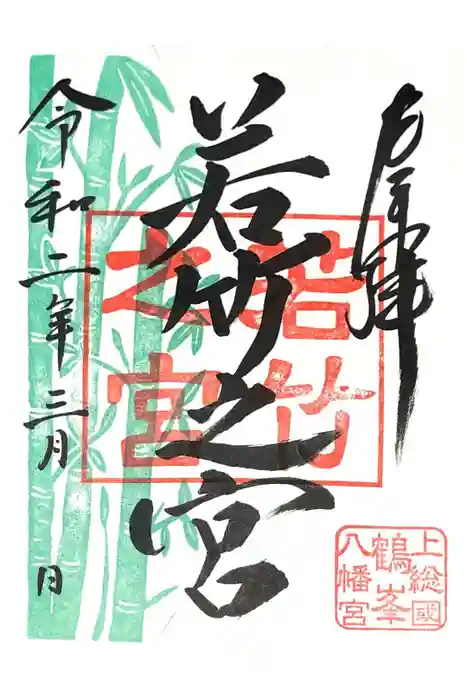 奉拝
若竹之宮
令和二年三月 日
若竹
之宮
上総國
鶴峯
八幡宮